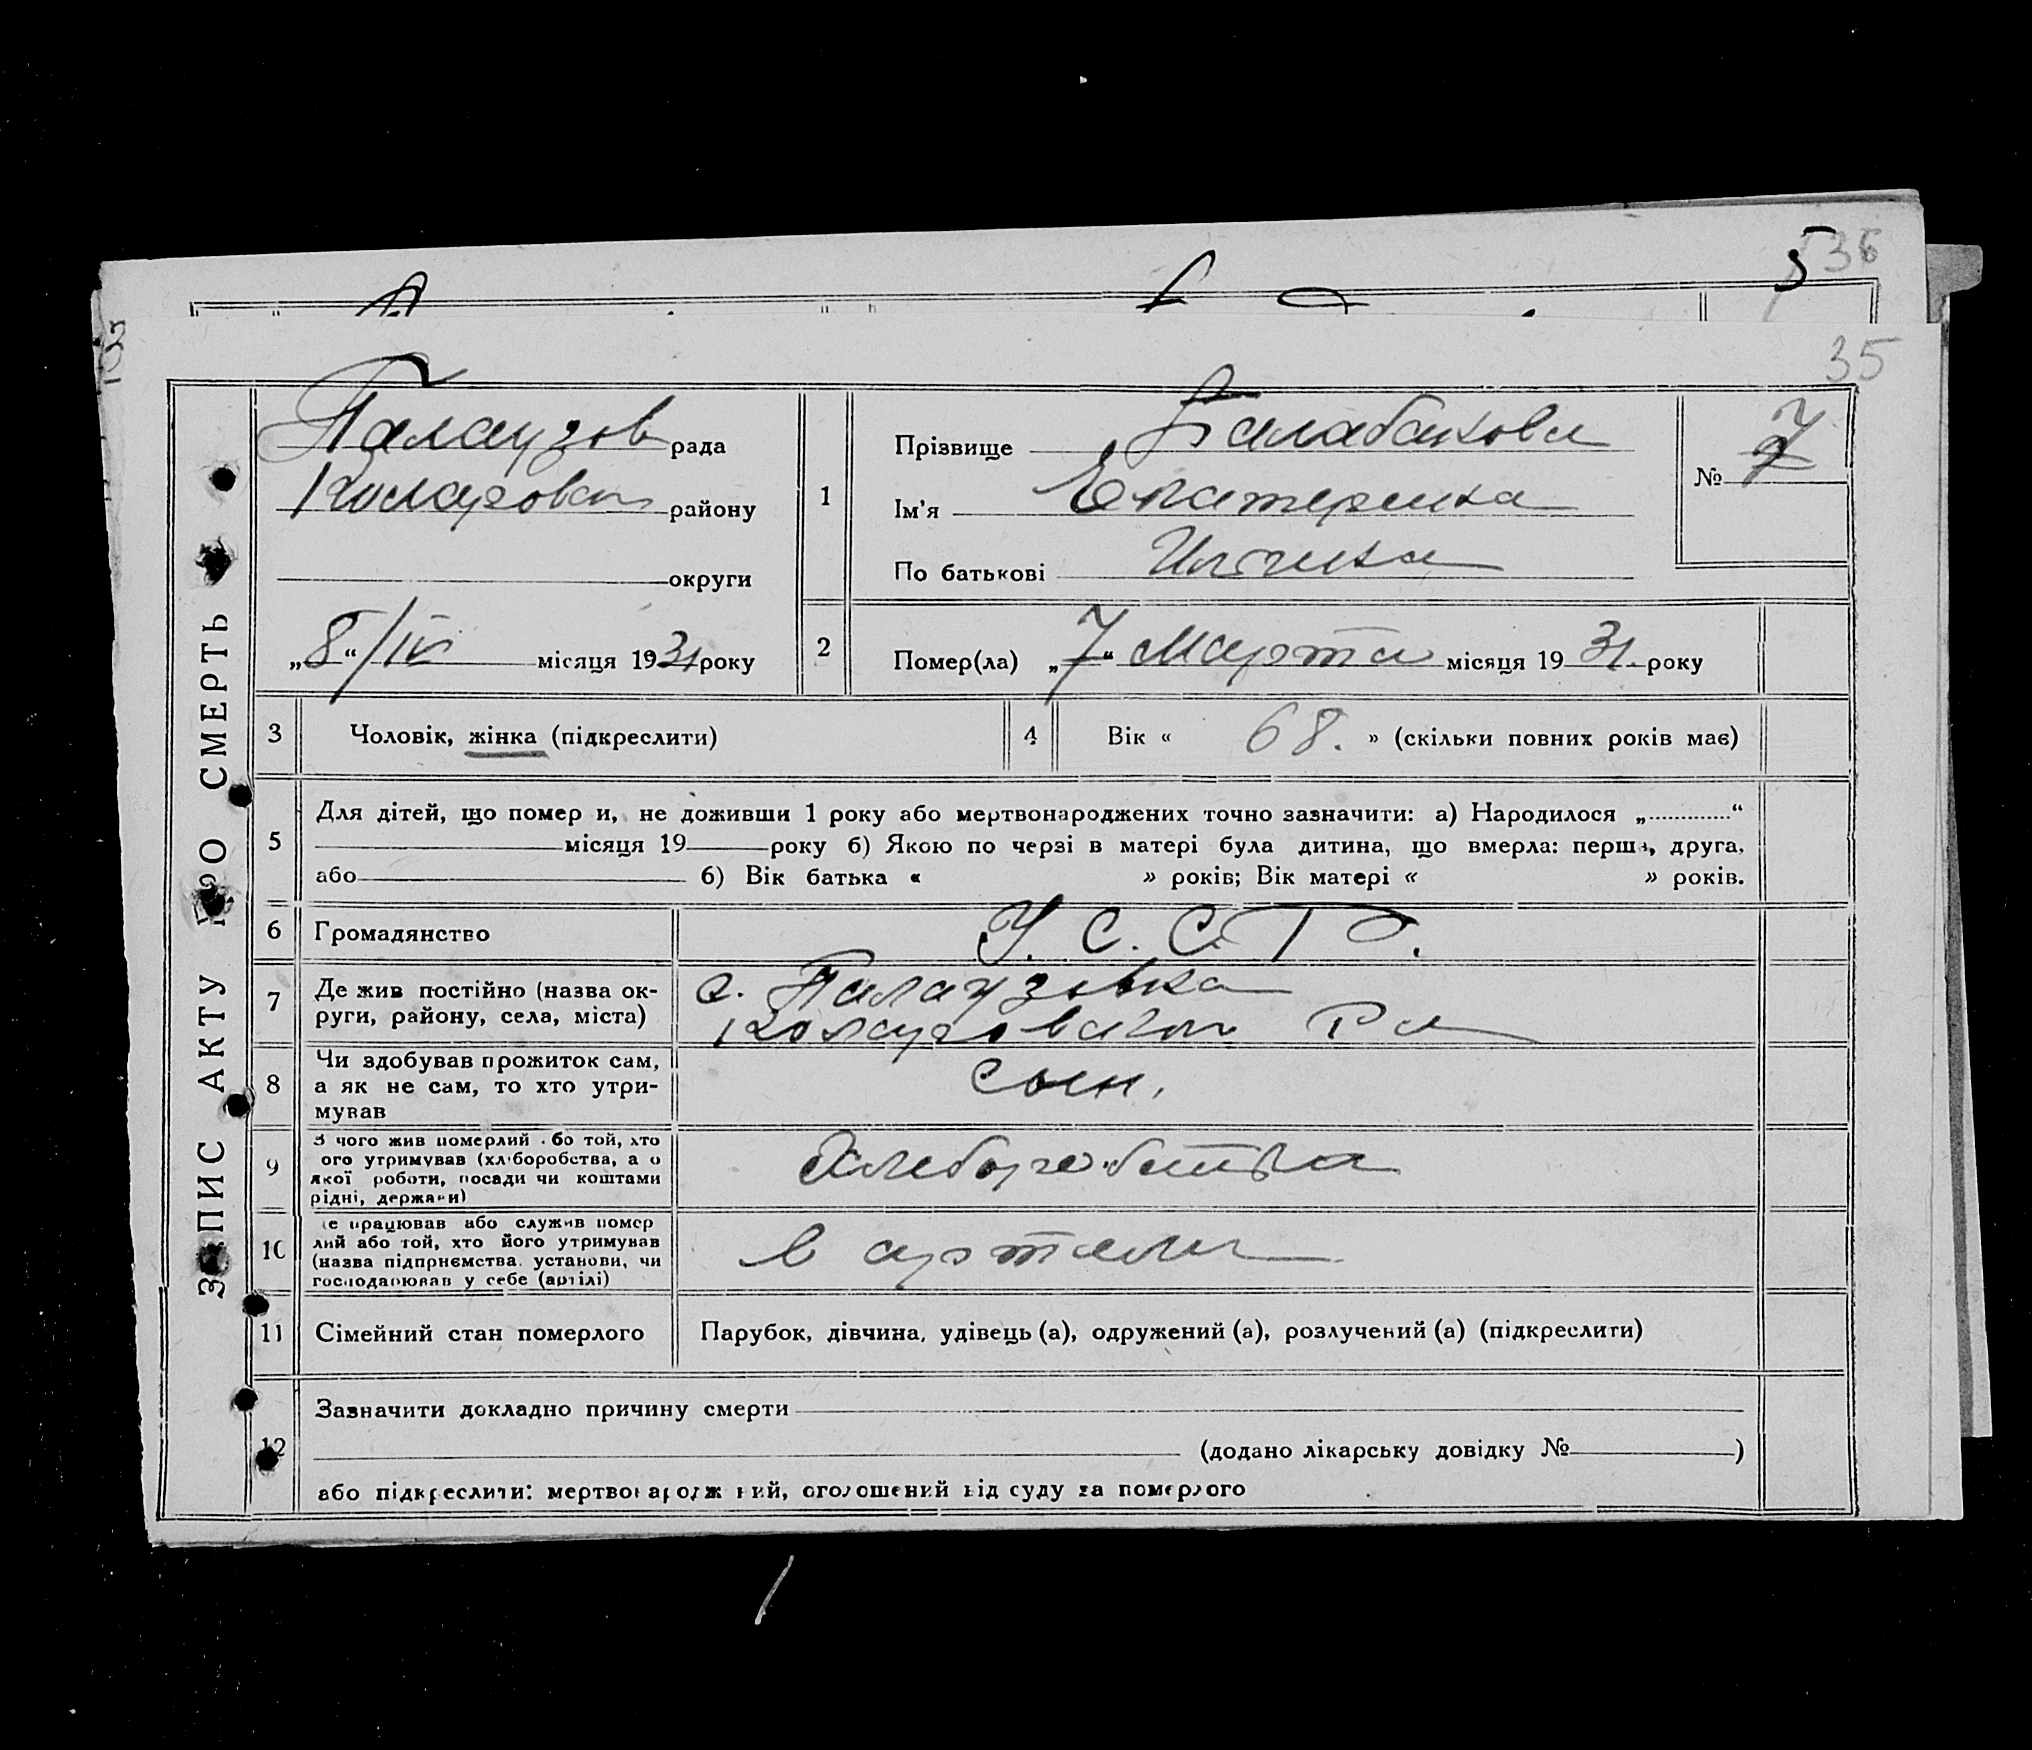 5 36
35
ЗАПИС АКТУ ПРО СМЕРТЬ
Палаузов рада
району
округи
„8“/IV місяця 1931 року
1
Прізвище Балабанова
Ім'я Екатерина
По батькові
№ 7
2
Помер(ла) „7“ Марта місяця 1931 року
3 Чоловік, жінка (підкреслити)
4 Вік « 68. » (скільки повних років має)
5
Для дітей, що помер и, не доживши 1 року або мертвонароджених точно зазначити: а) Народилося „.............“
місяця 19 року б) Якою по черзі в матері була дитина, що вмерла: перша, друга,
або б) Вік батька « » років; Вік матері « » років.
6 Громадянство У.С.С.Р.
7 Де жив постійно (назва ок-
руги, району, села, міста)
с. Палаузовка
Ра
8 Чи здобував прожиток сам,
а як не сам, то хто утри-
мував
сын.
9 З чого жив померлий або той, хто
ого утримував (хліборобства, а о
якої роботи, посади чи коштами
рідні, держави)
Хлеборобства
10 е працював або служив помер
лий або той, хто його утримував
(назва підприємства, установи, чи
господарював у себе (артілі)
в артели
11 Сімейний стан померлого Парубок, дівчина, удівець (а), одружений (а), розлучений (а) (підкреслити)
12
Зазначити докладно причину смерти
(додано лікарську довідку № )
або підкреслити: мертвонароджений, оголошений від суду за померлого